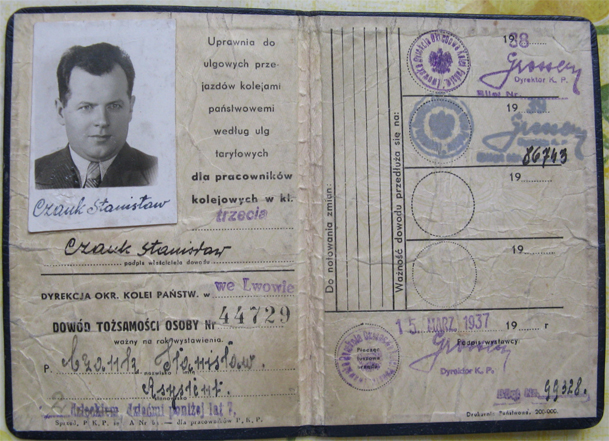 Czauk Stanisław
Uprawnia do
ulgowych prze-
jazdów kolejami
państwowemi
według ulg
taryfowych
dla pracowników
kolejowych w kl.
trzecia
Czauk Stanisław
podpis właściciela dowodu
DYREKCJA OKR. KOLEI PAŃSTW. w we Lwowie
DOWÓD TOŻSAMOŚCI OSOBY Nr 44729
ważny na rok wystawienia.
P. Czauk Stanisław.
Asystent.
dziećmi poniżej lat
dla pracowników P. K. P.
Do notowania zmian.
Ważność dowodu przedłuża się na:
1938
Dyrektor K. P.
Bilet Nr.
1939
86743
19
19
15. MARZ. 1937 19 r
Podpis wystawcy:
Pieczęć
Dyrektor K. P.
99328.
Drukarnia Państwowa 200.000.